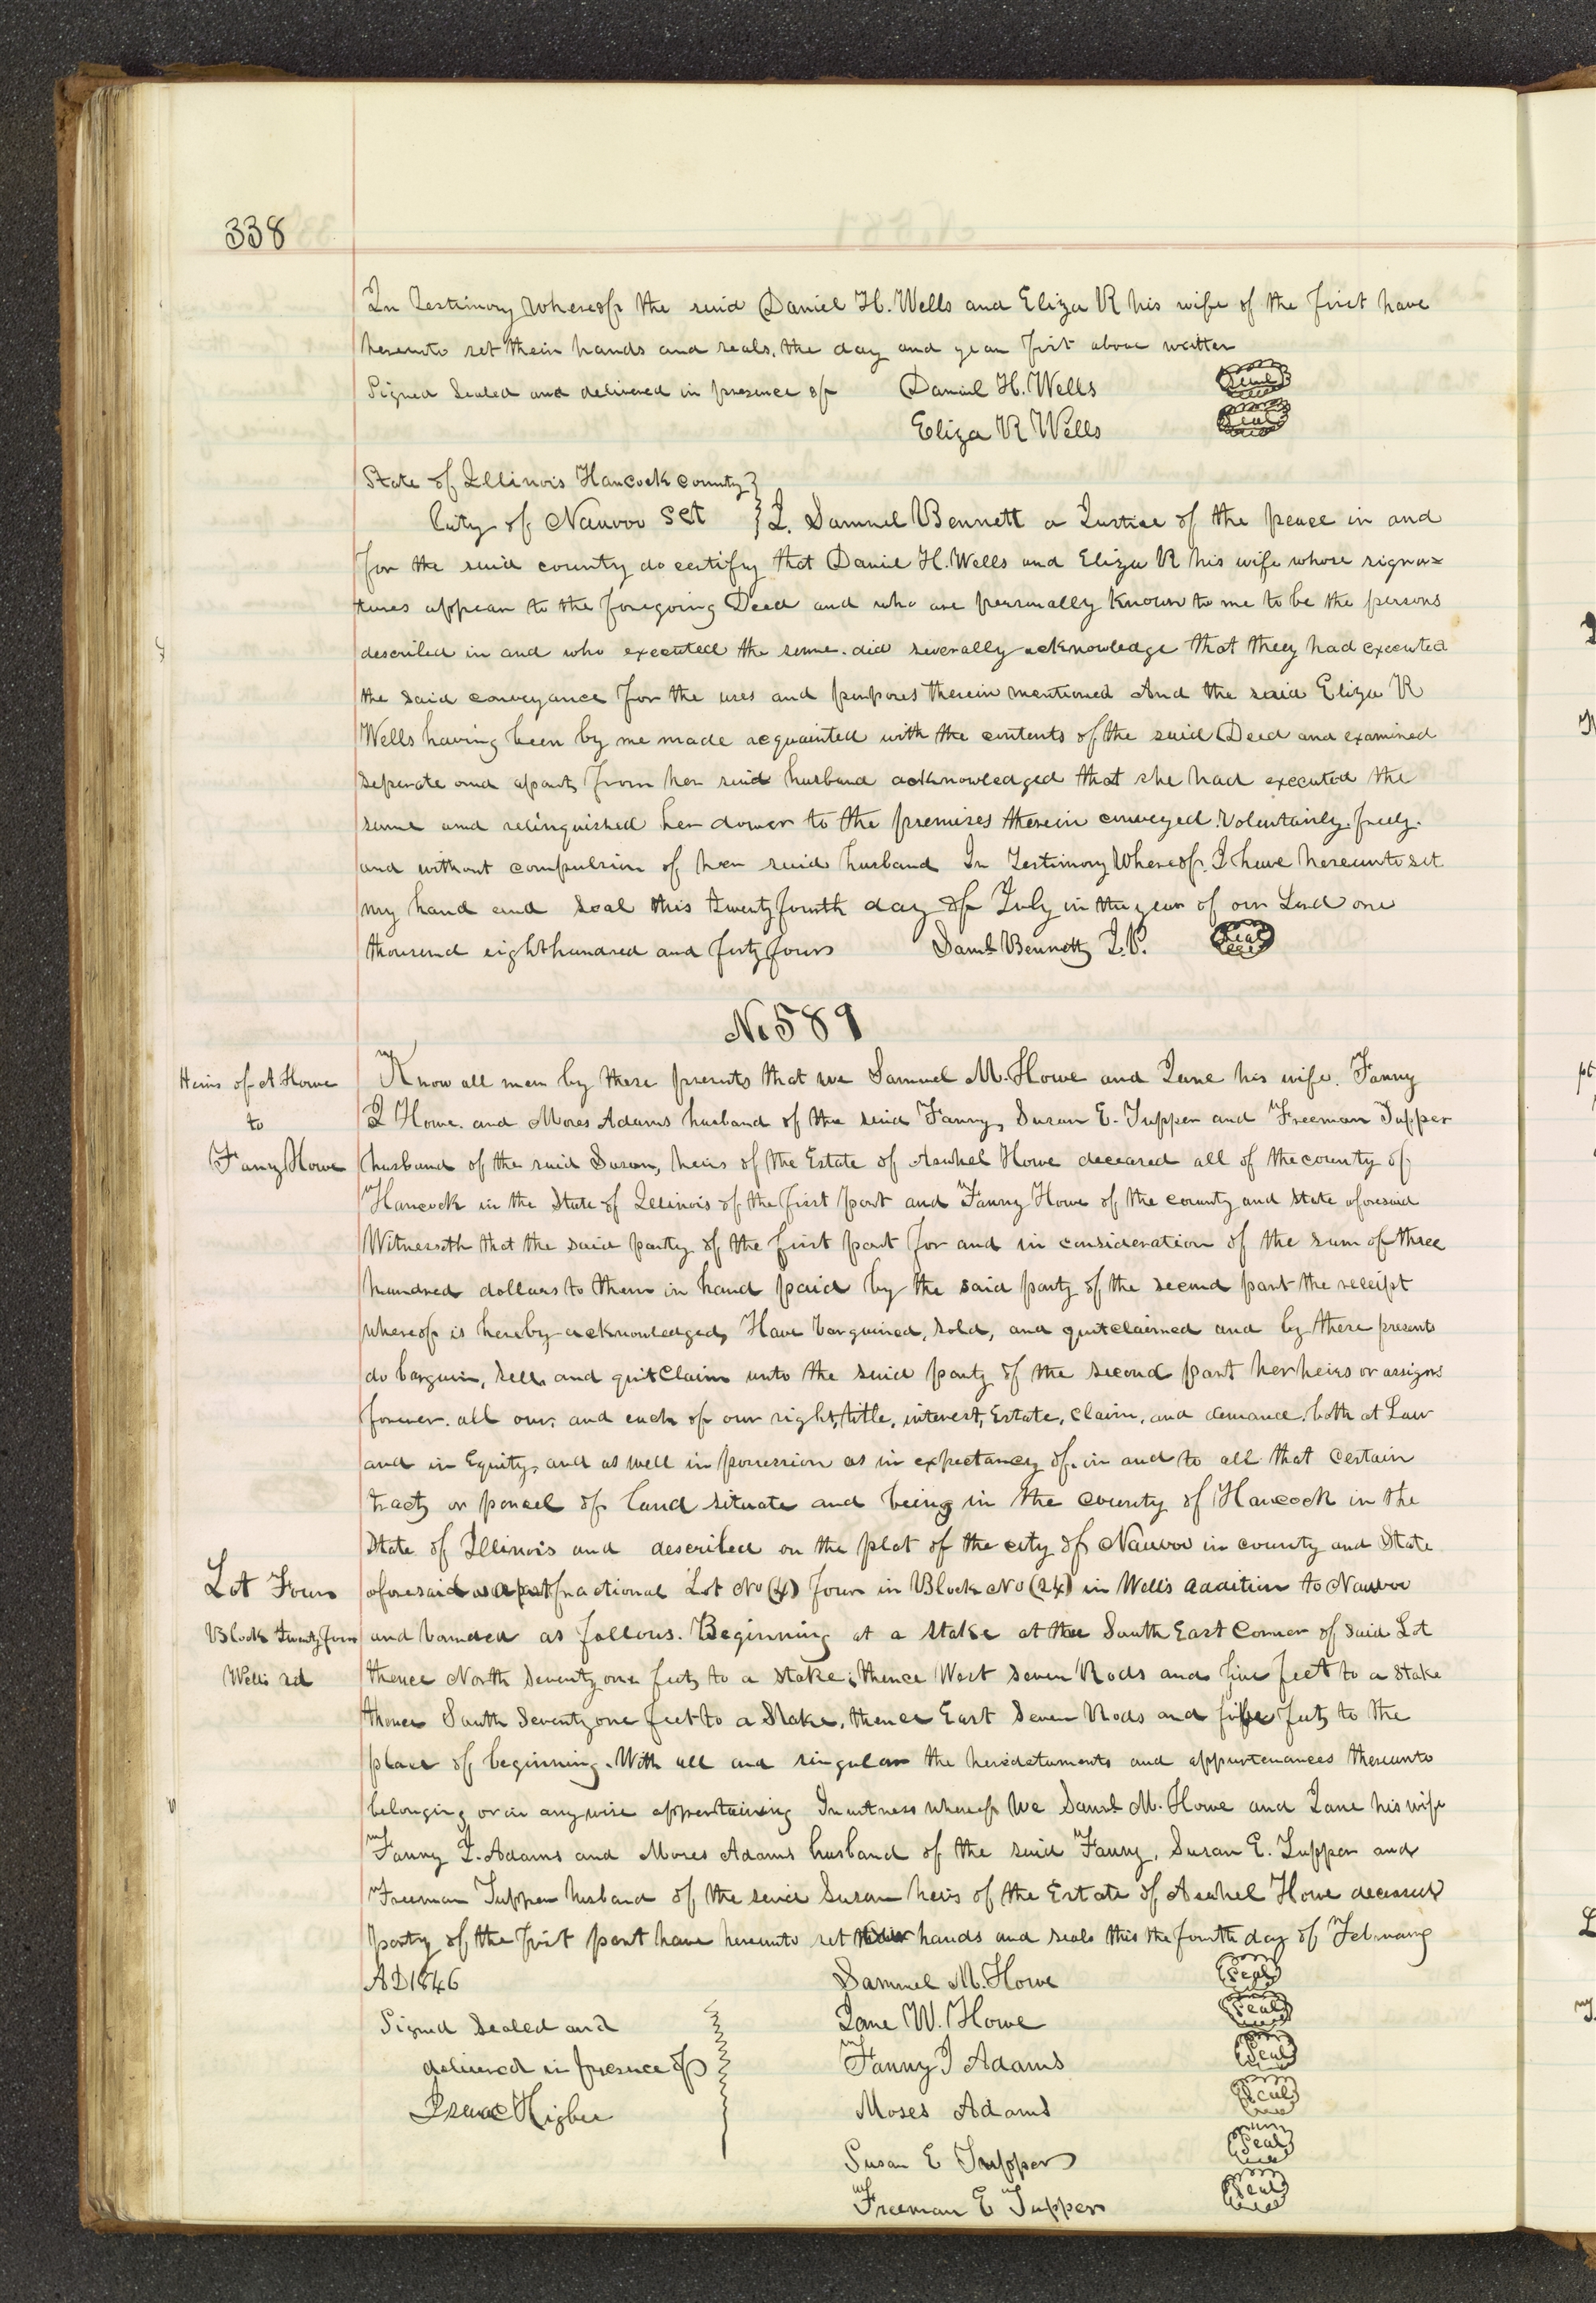 338
In Testimony Whereof the said Daniel H. Wells and Eliza R his wife of the first have
hereunto set their hands and seals, the day and year first above written
Signed Sealed and delivered in presence of Daniel H. Wells Seal
Eliza R Wells Seal
State of Illinois Hancock county }
City of Nauvoo Sct } I. Samuel Bennett a Justice of the peace in and
for the said county do certify that Daniel H. Wells and Eliza R his wife whose signa=
tures appear to the foregoing Deed and who are personally Known to me to be the persons
described in and who executed the same. did severally acknowledge that they had executed
the said conveyance for the uses and purposes therein mentioned And the said Eliza R
Wells having been by me made acquainted with the contents of the said Deed and examined
seperate and apart, from her said husband acknowledged that she had executed the
same and relinquished her dower to the premises therein conveyed. Voluntairly. freely.
and without compulsion of her said husband In Testimony Whereof. I have hereunto set
my hand and seal this twenty fourth day of July in the year of our Lord one
thousand eight hundred and forty four Saml Bennett J.P. Seal
No 589
Heirs of A Howe
to
Fany Howe
Know all men by these presents that we Samuel M. Howe and Jane his wife. Fanny
J Howe. and Moses Adams husband of the said Fanny, Susan E. Tupper and Freeman Tupper
husband of the said Susan, heirs of the Estate of Asahel Howe deceased all of the county of
Hancock in the State of Illinois of the first part and Fanny Howe of the county and State aforesaid
Witnesseth that the said party of the first part for and in consideration of the sum of three
hundred dollars to them in hand paid by the said party of the second part the receipt
whereof is hereby acknowledged, Have bargained, sold, and quitclaimed and by these presents
do bargain, sell, and quitClaim unto the said party of the second part her heirs or assigns
forever. all our, and each of our right, title, interest, Estate, Claim, and demand, both at Law
and in Equity, and as well in possession as in expectancy of. in and to all that certain
tract, or parcel of land situate and being in the county of Hancock in the
State of Illinois and described on the plat of the city of Nauvoo in county and State
Lot Four
Block twenty four
Wells ad
aforesaid as a part fractional Lot No (4) four in Block No (24) in Wells addition to Nauvoo
and bounded as follows. Beginning at a stake at the South East Corner of said Lot
thence North Seventy one feet, to a stake; thence West seven Rods and five feet to a stake
thence South Seventy one feet to a Stake, thence East Seven Rods and five feet, to the
place of beginning. With all and singular the heredataments and appurtenances thereunto
belonging or in any wise appertaining In witness whereof We Saml M. Howe and Jane his wife
Fanny J. Adams and Moses Adams husband of the said Fanny, Susan E. Tupper and
Freeman Tupper husband of the said Susan heirs of the Estate of Asahel Howe deceased
party of the first part have hereunto set their hands and seals this the fourth day of February
AD 1846 Samuel M. Howe Seal
Signed Sealed and Jane W. Howe Seal
delivered in presence of Fanny J Adams Seal
Isaac Higbee Moses Adams Seal
Susan E Tupper Seal
Freeman E Tupper Seal